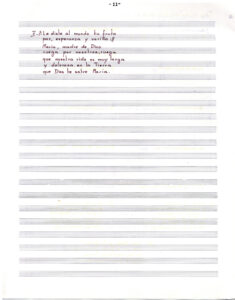 - 11 -
II-A Le diste al mundo tu fruto
paz, esperanza y cariño //
María, madre de Dios
ruega por nosotros, ruega
que nuestra vida es muy larga
y dolorosa en la tierra
que Dios te salve María.